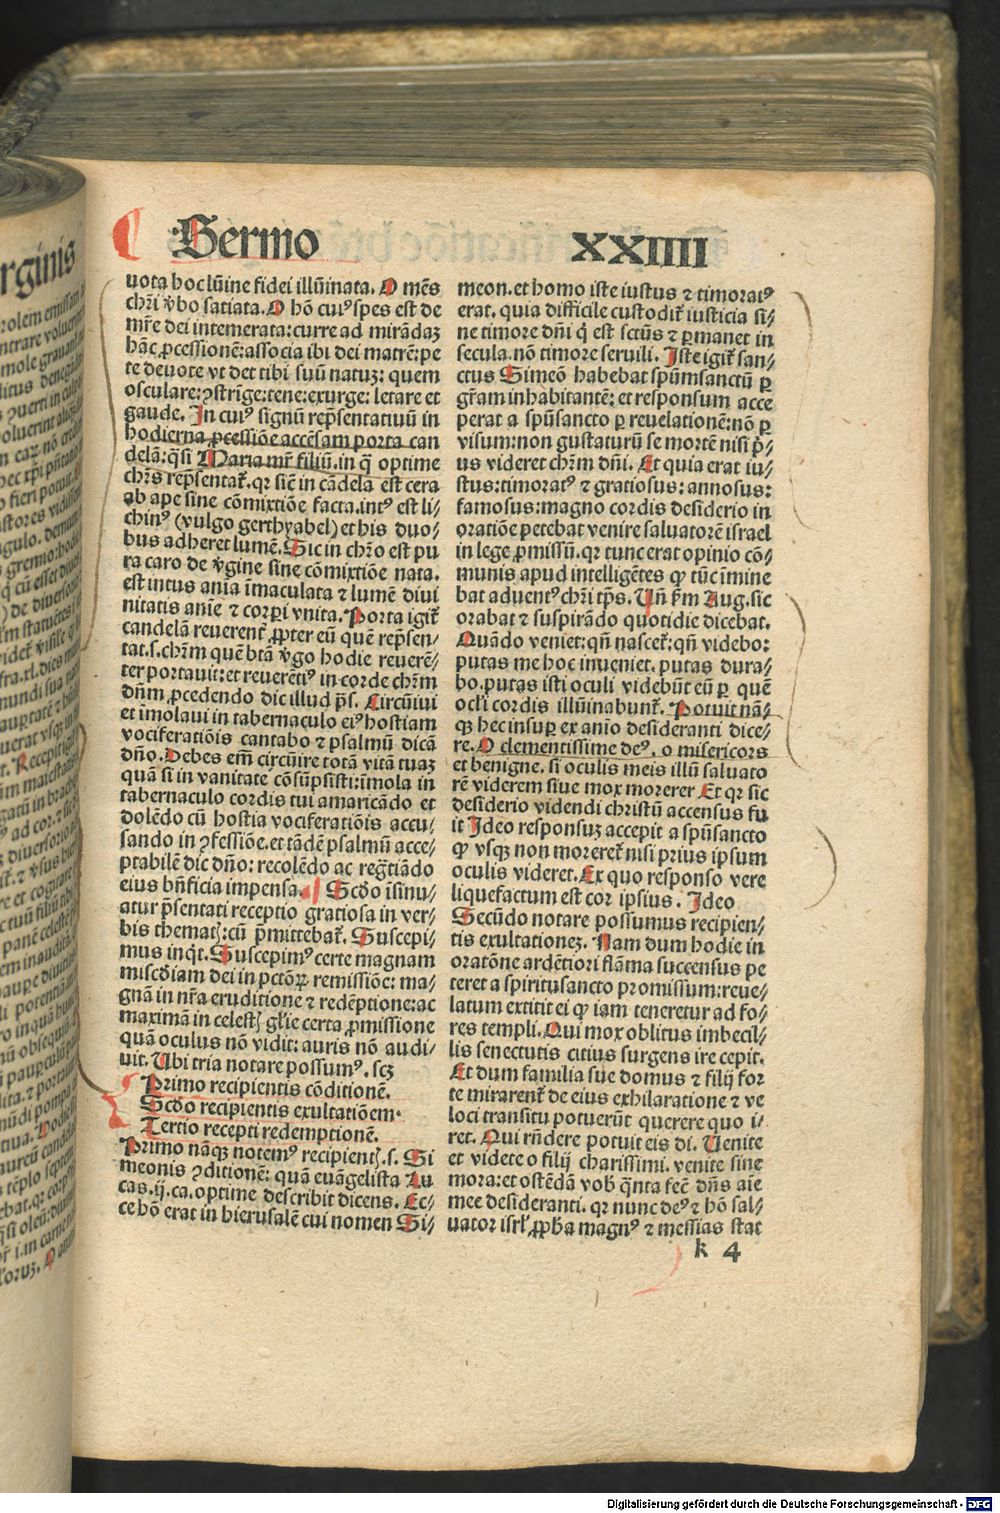 Sermo XXIIII
uota hoc lūine fidei illūinata. O mēs
chr̄i v̄bo satiata. O hō cuiꝰ spes est de
mr̄e dei intemerata: curre ad mirādaꝫ
hāc ꝓcessionē: associa ibi dei matrē: pe
te deuote vt det tibi suū natuꝫ: quem
osculare: ꝯstrīge: tene: exurge: letare et
gaude. In cuiꝰ signū rep̄sentatiuū in
hodierna ꝓcessiōe accēsam porta can
delā: q̄si Maria mr̄ filiū. in q̄ optime
chr̄s rep̄sentat̄. qꝛ sic̄ in cādela est cera
ab ape sine cōmixtiōe facta. intꝰ est li⸗
chinꝰ (vulgo gerthyabel) et his duo⸗
bus adheret lumē. Sic in chr̄o est pu
ra caro de v̄gine sine cōmixtiōe nata.
est intus aīa īmaculata ⁊ lumē diui
nitatis aīe ⁊ corꝑi vnita. Porta igit̄
candelā reuerent̄ ꝓpter eū quē rep̄sen⸗
tat. s. chr̄m quē btā v̄go hodie reuerē⸗
ter portauit: et reuerētiꝰ in corde chr̄m
dn̄m ꝓcedendo dic illud p̄s. Circūiui
et īmolaui in tabernaculo eiꝰ hostiam
vociferatiōis cantabo ⁊ psalmū dicā
dn̄o. Debes em̄ circūire totā vitā tuaꝫ
quā si in vanitate cōsūpsisti: īmola in
tabernaculo cordis tui amaricādo et
dolēdo cū hostia vociferatiōis accu⸗
sando in ꝯfessiōe. et tādē psalmū acce⸗
ptabilē dic dn̄o: recolēdo ac regr̄tiādo
eius bn̄ficia impensa. Scd̄o īsinu⸗
atur p̄sentati receptio gratiosa in ver⸗
bis thematꝭ: cū p̄mittebat̄. Suscepi⸗
mus inq̇t. Suscepimꝰ certe magnam
miscd̄iam dei in pctōꝝ remissiōe: ma⸗
gnā in nr̄a eruditione ⁊ redēptione: ac
maximā in celestꝭ gl̄ie certa ꝓmissione
quā oculus nō vidit: auris nō audi⸗
uit. Ubi tria notare possumꝰ. scꝫ
Primo recipientis cōditionē.
Scd̄o recipientis exultatiōem.
Tertio recepti redemptionē.
Primo nāqꝫ notemꝰ recipientꝭ. s. Si
meonis ꝯditionē: quā euāgelista Lu
cas. ij. ca. optime describit dicens. Ec⸗
ce hō erat in hierusalē cui nomen Si⸗
meon. et homo iste iustus ⁊ timoratꝰ
erat. quia difficile custodit̄ iusticia si⸗
ne timore dn̄i q̇ est sctūs ⁊ ꝑmanet in
secula. nō timore seruili. Iste igit̄ san⸗
ctus Simeō habebat spūmsanctū ꝑ
gr̄am inhabitantē: et responsum acce
perat a spūsancto ꝑ reuelationē: nō ꝑ
visum: non gustaturū se mortē nisi p̄⸗
us videret chr̄m dn̄i. Et quia erat iu⸗
stus: timoratꝰ ⁊ gratiosus: annosus:
famosus: magno cordis desiderio in
oratiōe petebat venire saluatorē israel
in lege ꝓmissū. qꝛ tunc erat opinio cō⸗
munis apud intelligētes ꝙ tūc īmine
bat aduentꝰ chr̄i tp̄s. Un̄ ẜm Aug. sic
orabat ⁊ suspirādo quotidie dicebat.
Quādo veniet: qn̄ nascet̄: qn̄ videbo:
putas me hoc inueniet. putas dura⸗
bo. putas isti oculi videbūt eū ꝑ quē
ocl̄i cordis illūinabunt̄. Potuit nā⸗
qꝫ hec insuꝑ ex aīo desideranti dice⸗
re. O clementissime deꝰ. o misericors
et benigne. si oculis meis illū saluato
rē viderem siue mox morerer Et qꝛ sic
desiderio videndi christū accensus fu
it Ideo responsuꝫ accepit a spūsancto
ꝙ vsqꝫ non moreret̄ nisi prius ipsum
oculis videret. Ex quo responso vere
liquefactum est cor ipsius. Ideo
Secūdo notare possumus recipien⸗
tis exultationeꝫ. Nam dum hodie in
oratōne ardētiori flāma succensus pe
teret a spiritusancto promissum: reue⸗
latum extitit ei ꝙ iam teneretur ad fo⸗
res templi. Qui mox oblitus imbecil⸗
lis senectutis citius surgens ire cepit.
Et dum familia sue domus ⁊ filij for
te mirarent̄ de eius exhilaratione ⁊ ve
loci transitu potuerūt querere quo i⸗
ret. Qui rn̄dere potuit eis di. Uenite
et videte o filij charissimi. venite sine
mora: et ostēdā vob̄ q̄nta fec̄ dn̄s aīe
mee desideranti. qꝛ nunc deꝰ ⁊ hō sal⸗
uator isrl̄ ꝓpha magnꝰ ⁊ messias stat
k 4
Digitalisierung gefördert durch die Deutsche Forschungsgemeinschaft - DFG